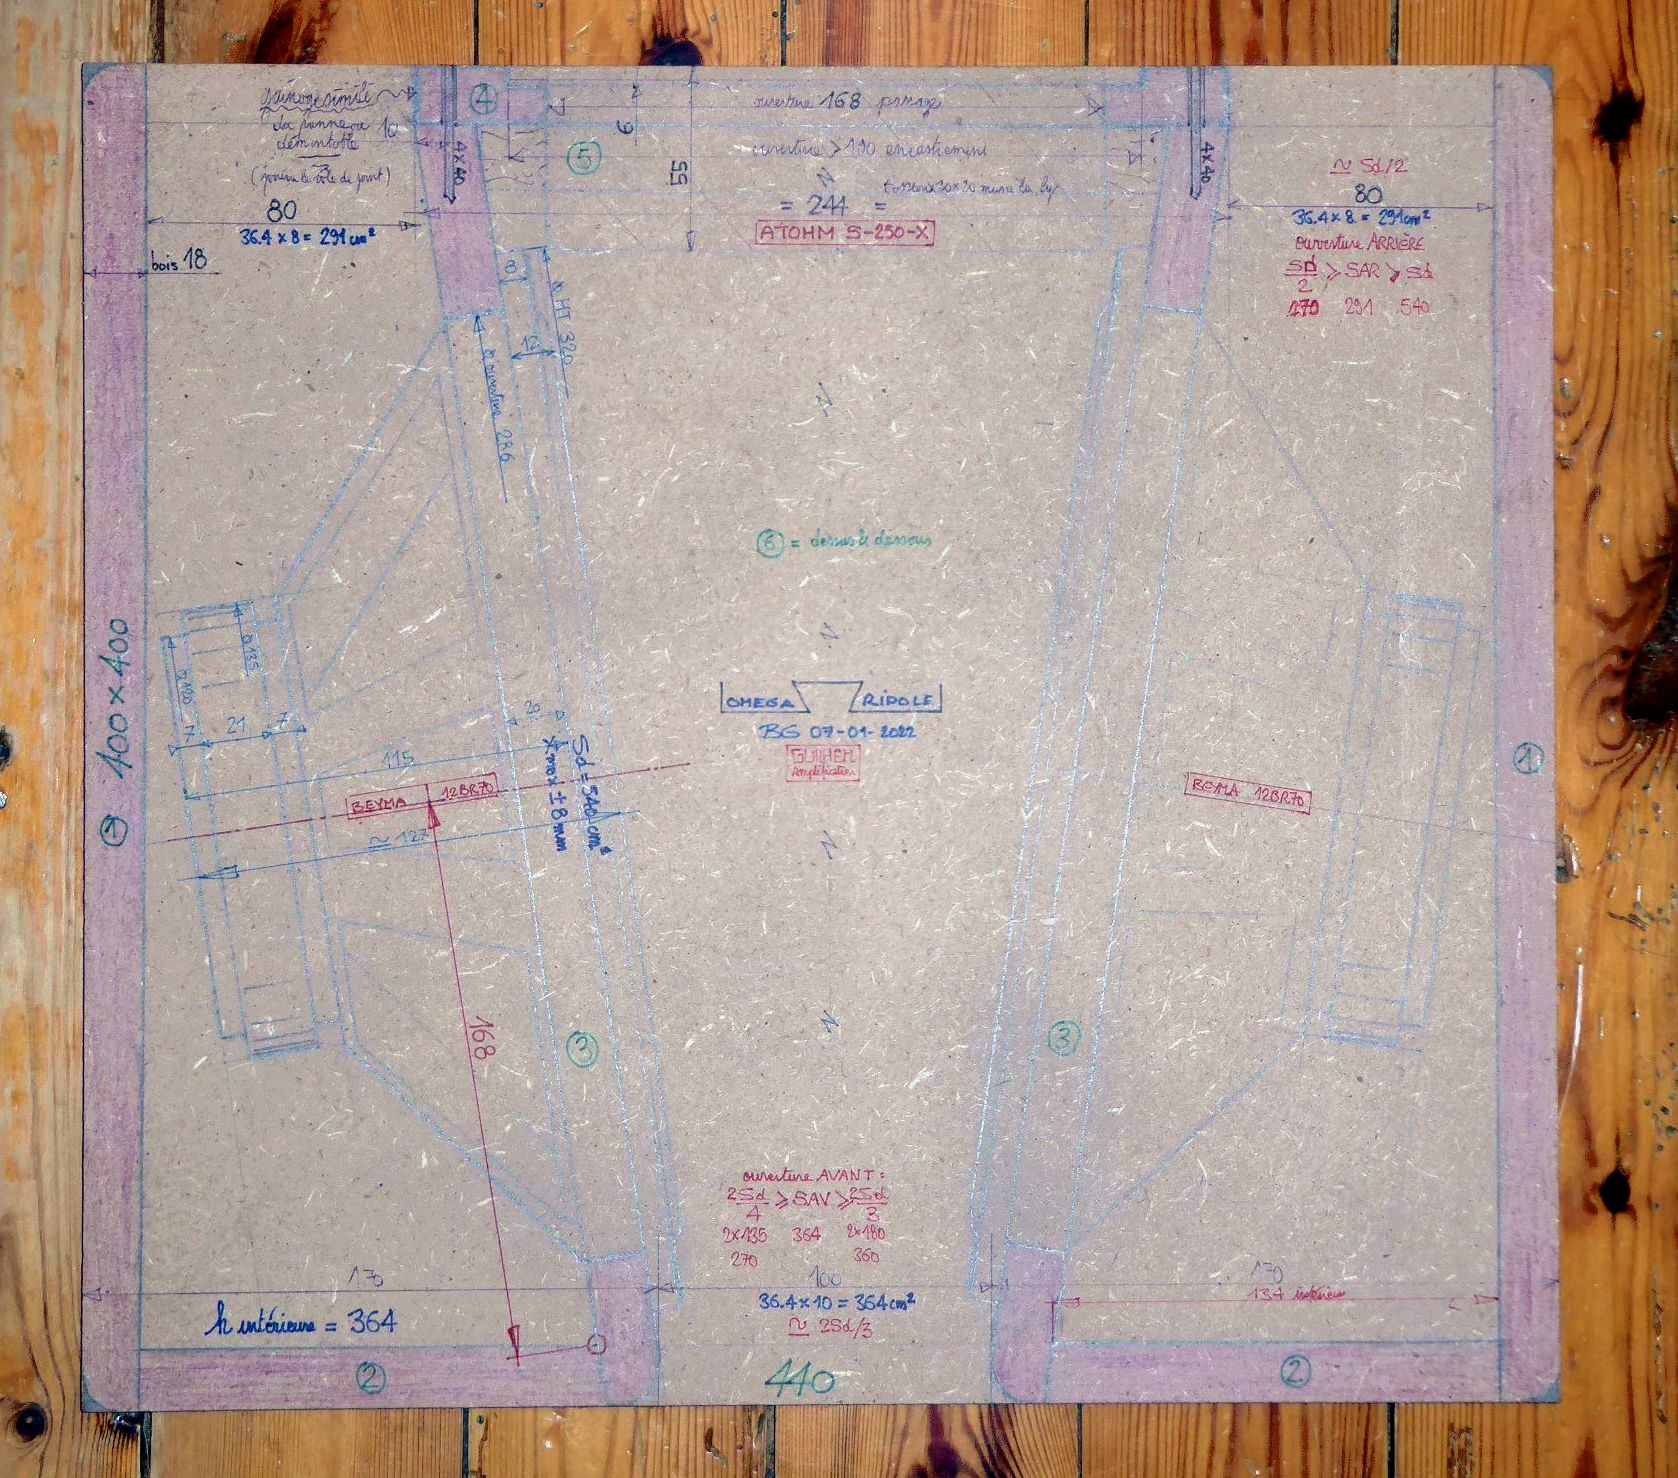 gainage simili
du panneau 10
démontable
80
36.4 x 8 = 291 cm²
bois 18
4
5
4x40
6
55
ouverture 168 passage
ouverture > 190 encastrement
= 244 =
ATOHM S-250-X
4x40
≃ Sd/2
80
36.4 x 8 = 291 cm²
ouverture ARRIÈRE
Sd/2 ⩾ SAR ⩾ Sd
270 291 540
8
12
ø HT 320
ø ouverture 286
6 = dessus & dessous
1 400 x 400
ø 120
ø 135
7 21 7
20
115
BEYMA 12BR70
≃ 127
Sd = 540 cm²
Xmax ± 8 mm
OMEGA RIPOLE
BG 07-01-2022
GUILHEM
Amplification
BEYMA 12BR70
1
168
3
3
ouverture AVANT :
2Sd/4 ⩾ SAV ⩾ 2Sd/3
2x135 364 2x180
270 360
170
100
170
134 intérieur
36.4 x 10 = 364 cm²
≃ 2Sd/3
h intérieure = 364
2
440
2